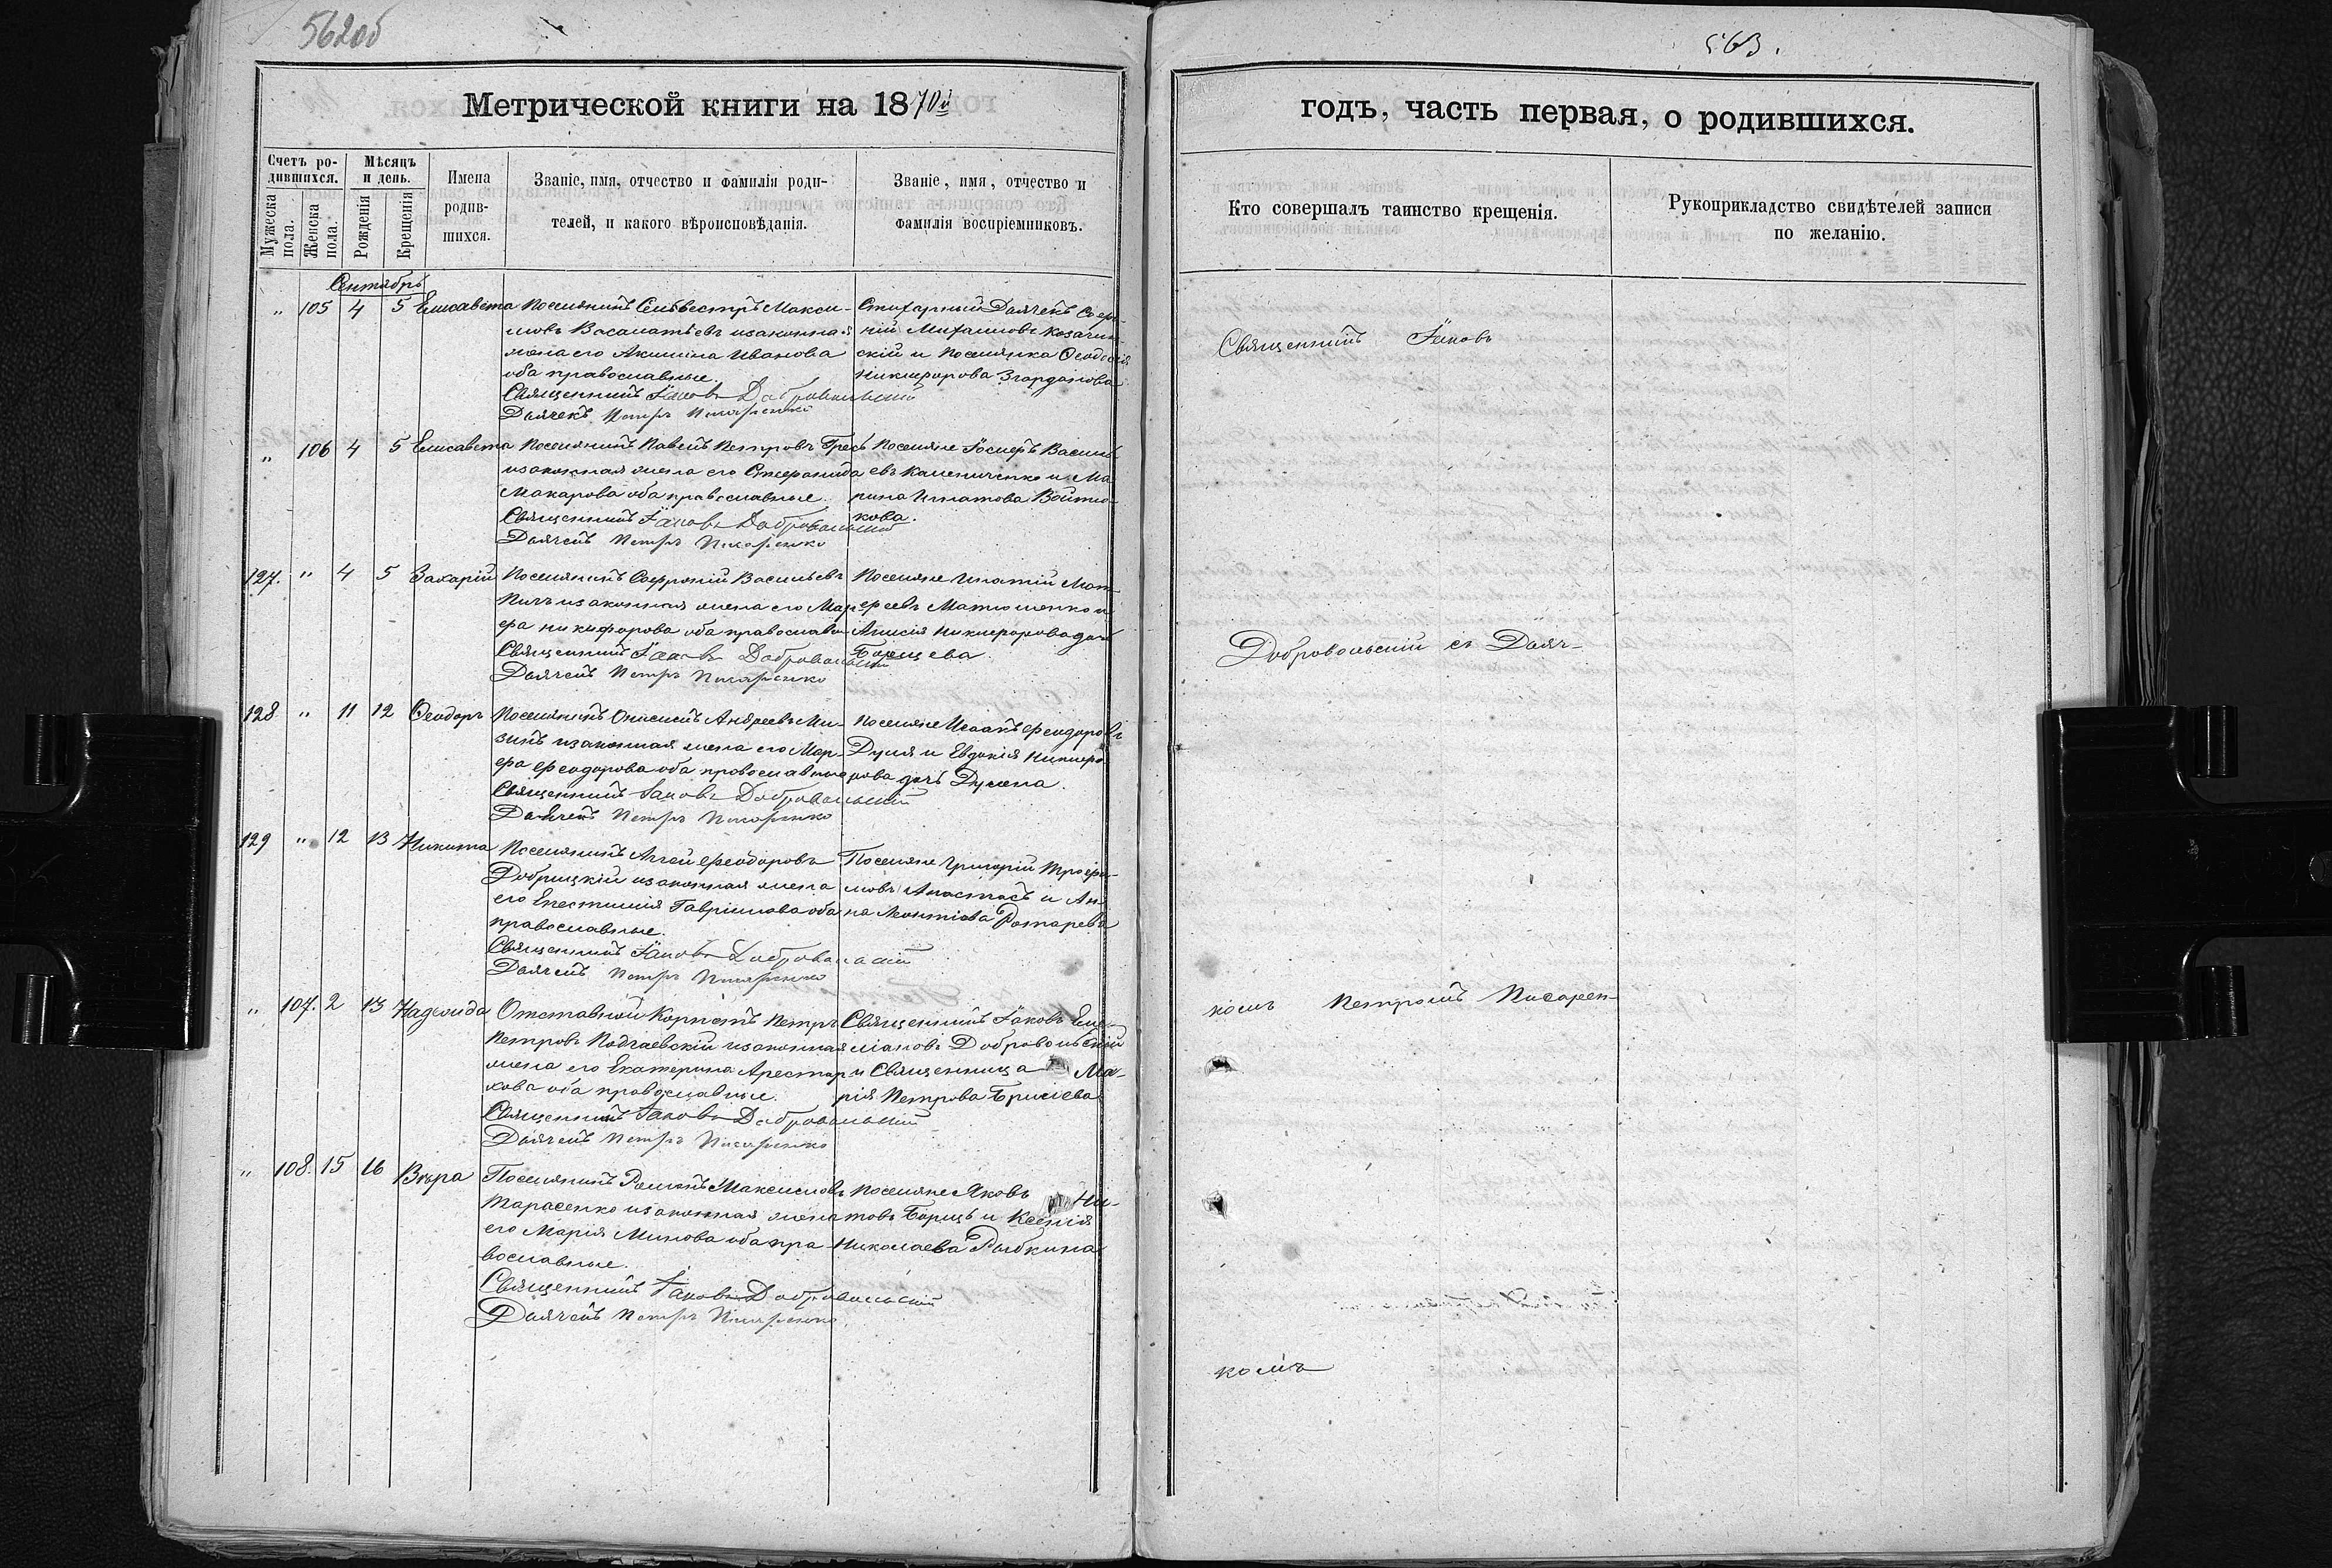 562об
563.
Метрической книги на 1870й
годъ, часть первая, о родившихся.
Счетъ родившихся.
Мужеска пола.
Женска пола.
Мѣсяцъ и день.
Рожденія
Крещенія
Имена родив-
шихся.
Званіе, имя, отчество и фамилія роди-
телей, и какого вѣроисповѣданія.
Званіе, имя, отчество и
фамилія воспріемниковъ.
Кто совершалъ таинство крещенія.
Рукоприкладство свидѣтелей записи
по желанію.
Сентябрь
" 105 4 5 Елисавета
Поселянинъ Сельвестръ Макси-
мовъ изаконная
жена его Акилина Иванова
оба православные.
Священникъ Іаковъ Добровольский
Дьячекъ Петръ Писаренко
Стихарный Дьячекъ Софро-
ній Михаиловъ Козачин-
скій и Поселянка Феодосія
Никифорова
" 106 4 5 Елисавета
Поселянинъ Павелъ Петровъ Гресь
изаконная жена его Стефанида
Макарова оба православные.
Священникъ Іаковъ Добровольский
Дьячекъ Петръ Писаренко
Поселяне Іосифъ Василь-
евъ Калениченко и Ма-
рина Игнатова Войтю-
кова.
127. " 4 5 Захарій
Поселянинъ Софроній Васильевъ
изаконная жена его Мар-
фа Никифорова оба православн
Священникъ Іаковъ Добровольский
Дьячекъ Петръ Писаренко
Поселяне Игнатій Мат-
феевъ Матюшенко и
Анисія Никифорова дочь
Борщева.
128 " 11 12 Феодоръ
Поселянинъ Онисимъ Андреевъ Ми-
зинъ изаконная жена его Мар-
фа Феодорова оба православные
Священникъ Іаковъ Добровольский
Дьячекъ Петръ Писаренко
Поселяне Исаакъ Феодоровъ
и Евдокія Никифо-
рова дочь
129 " 12 13 Никита
Поселянинъ Аггей Феодоровъ
Добрицкій изаконная жена
его Епестимія Гавриилова оба
православные.
Священникъ Іаковъ Добровольский
Дьячекъ Петръ Писаренко
Поселяне Григорій Трофи-
мовъ Апостасъ и Ан-
на Леонтіева Ротарева
" 107. 2 13 Надежда
Отставной Корнетъ Петръ
Петровъ Подгаевскій изаконная
жена его Екатерина Аристар-
хова оба православные.
Священникъ Іаковъ Добровольский
Дьячекъ Петръ Писаренко
Священникъ Іаковъ Еми-
ліановъ Добровольскій
и Священница Ма-
рія Петрова
" 108. 15 16 Вѣра
Поселянинъ Романъ Максимовъ
Тарасенко изаконная жена
его Марія Минова оба пра-
вославные.
Священникъ Іаковъ Добровольский
Дьячекъ Петръ Писаренко
Поселяне Яковъ Иг-
натовъ Борщъ и Ксенія
Николаева Рыбкина
Священникъ Іаковъ
Добровольскій съ Дьяч-
комъ Петромъ Писарен-
комъ